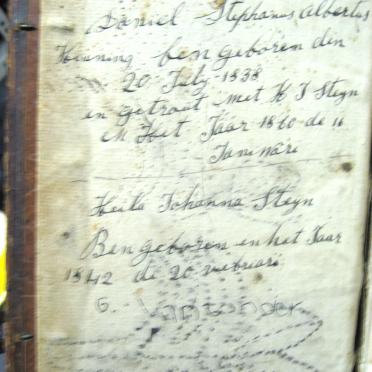 Daniel Stephanus Albertus
Henning ben geboren den
20 July 1838
en getraat met H J Steyn
in Het Jaar 1860 de 11
Janüari
Heila Johanna Steyn
Ben geboren en het Jaar
1842 de 20 vebruari
G.